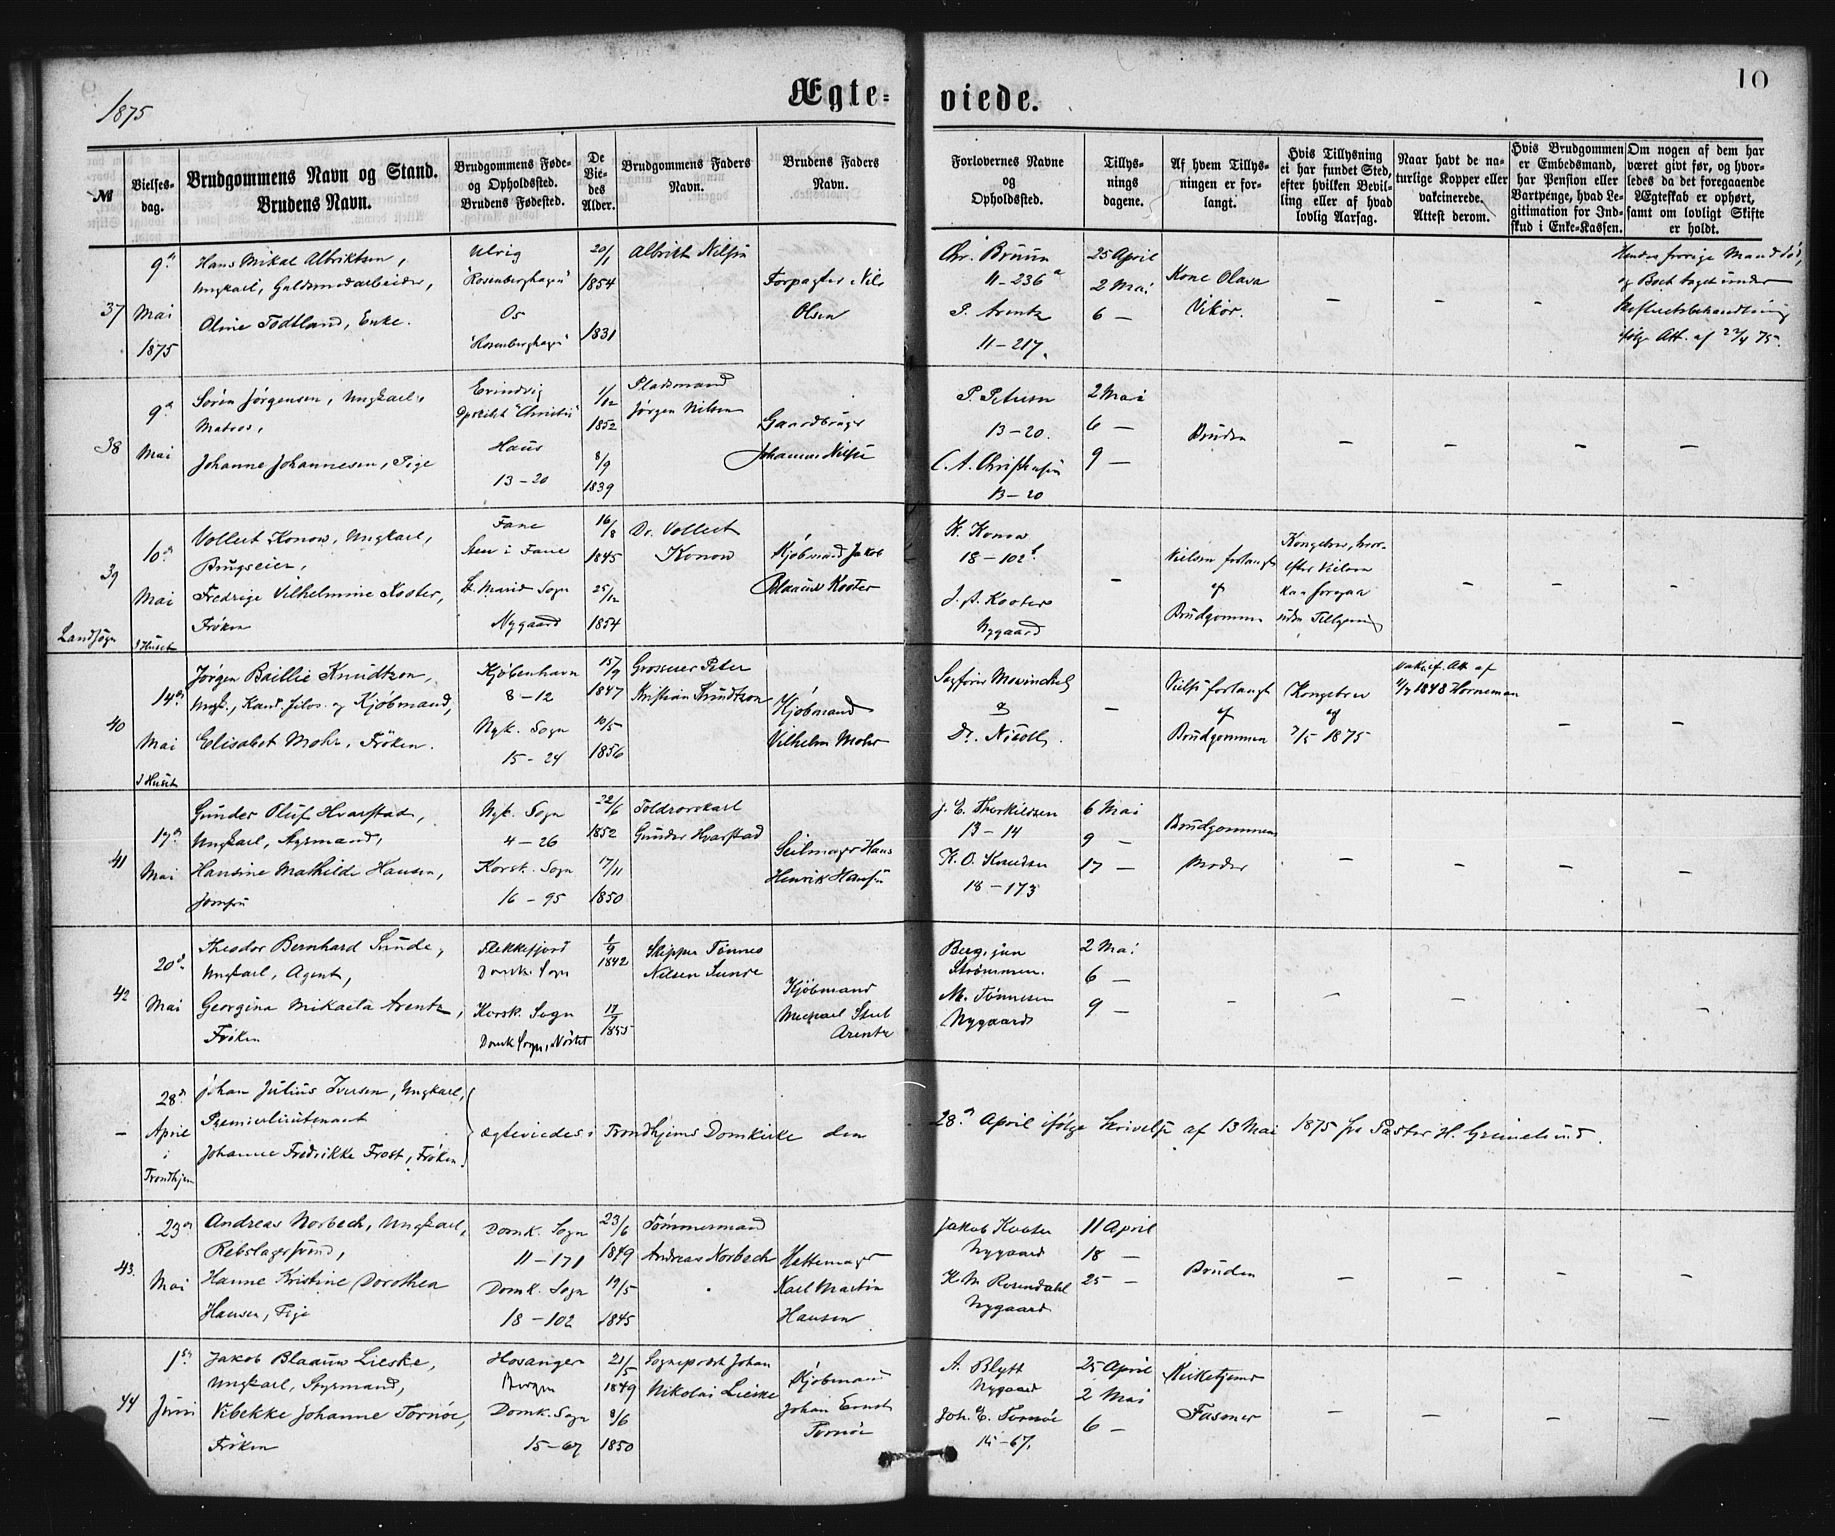 1875
Ægte-
viede.
10
№
Vielses-
dag.
Brudgommens Navn og Stand.
Brudens Navn.
Brudgommens Føde-
og Opholdssted.
Brudens Fødested.
De
Vie-
des
Alder.
Brudgommens Faders
Navn.
Brudens Faders
Navn.
Forlovernes Navne
og
Opholdssted.
Tillys-
nings
dagene.
Af hvem Tillys-
ningen er for-
langt.
Hvis Tillysning
ei har fundet Sted,
efter hvilken Bevil-
ling eller af hvad
lovlig Aarsag.
Naar havt de na-
turlige Kopper eller
vakcinerede.
Attest derom.
Hvis Brudgommen
er Embedsmand,
har Pension eller
Vartpenge, hvad Le-
gitimation for Ind-
skud i Enke-Kassen.
Om nogen af dem har
været givt før, og hvor-
ledes da det foregaaende
Ægteskab er ophørt,
samt om lovligt Skifte
er holdt.
37
9de
Mai
1875
Hans Mikal Albriktsen,
Ungkarl, Guldsmedarbeider,
Oline Todtland, Enke.
Ulvig
"Rosenberghagen"
Os
"Rosenberghagen"
20/1
1854
1831
Albrikt Nilsen
Forpagter Nils
Olsen
Chr. Bruun
11-236a
P. Arentz
11-217.
25 April
2 Mai
6 —
Kone Olava
Vikør.
—
—
—
Hendes forrige Mand død,
og Boet taget under
Skifteretsbehandling
ifølge Att. af 22/4 75.
38
9de
Mai
Søren Jørgensen, Ungkarl,
Matros,
Johanne Johannesen, Pige
Evindvig
"Christi"
Haus
13-20
1/12
1852
8/9
1839
Pladsmand
Jørgen Nilsen
Gaardbruger
Johannes Nilsen
P. Petersen
13-20.
C. A. Christensen
13-20
2 Mai
6 —
9 —
Bruden
—
—
—
—
39
Landsogn
10de
Mai
I Huset
Vollert Konow, Ungkarl,
Brugseier,
Fredrige Vilhelmine Kooter,
Frøken
Fane
Sten i Fane
St. Marie Sogn
Nygaard
16/8
1845
25/12
1854
Dr. Vollert
Konow
Kjøbmand Jakob
Blaauw Kooter
W. Konow
18-102b
J. A. Kooter
Nygaard
—
Vielsen forlangt
af
Brudgommen
Kongebrev, hvor-
efter Vielsen
kan foregaa
uden Tillysning
—
—
—
40
14de
Mai
I Huset
Jørgen Baillie Knudtzon,
Ungk., Kand. filos. og Kjøbmand,
Elisabet Mohr, Frøken.
Kjøbenhavn
8-12
Nyk. Sogn
15-24
15/9
1847
10/5
1856
Grosserer Peter
Kristian Knudtzon
Kjøbmand
Vilhelm Mohr
Sagfører Mowinckel
og
Dr. Nicoll.
—
Vielse forlangt
af
Brudgommen
Kongebrev
af
7/5 1875
Vakcif. Att. af
1848 Horneman
—
—
41
17de
Mai
Gunder Oluf Hvarstad,
Ungkarl, Styrmand,
Hansine Mathilde Hansen,
Jomfru
Nyk. Sogn
4-26
Korsk. Sogn
16-95
22/6
1852
17/11
1850
Toldrorskarl
Gunder Hvarstad
Seilmager Hans
Henrik Hansen
J. E. Thorkildsen
13-14
K. O. Knudsen
18-173
6 Mai
9 —
17 —
Brudgommens
Broder
—
—
—
—
42
20de
Mai
Theodor Bernhard Sunde,
Ungkarl, Agent,
Georgina Mikaela Arentz,
Frøken
Flekkefjord
Domk. Sogn
Korsk. Sogn
Domk Sogn, Nøstet
1/9
1842
11/9
1855
Skipper Tønnes
Nilsen Sunde
Kjøbmand
Michael Stub
Arentz
Berg, jun
Strømmen.
M. Tønnesen
Nygaard
2 Mai
6 —
9 —
—
—
—
—
—
—
28de
April
i
Trondhjem
Johan Julius Iversen, Ungkarl,
Premierlieutenant
Johanne Fredrikke Frost, Frøken
ægteviedes i Trondhjems Domkirke den
28de April ifølge Skrivelse af 13 Mai 1875 fra Pastor H. Grimelund.
43.
23de
Mai
Andreas Norbech, Ungkarl,
Rebslagersvend,
Hanne Kristine Dorothea
Hansen, Pige
Domk. Sogn
11-171
Domk. Sogn
18-102
23/6
1849
19/5
1845
Tømmermand
Andreas Norbech
Hattemager
Karl Martin
Hansen
Jakob Kooter
Nygaard
K. M. Rosendahl
Nygaard
11 April
18 —
25 —
Bruden
—
—
—
—
44
1ste
Juni
Jakob Blaauw Lieske,
Ungkarl, Styrmand,
Vibekke Johanne Tornøe,
Frøken
Hosanger
Bergen
Domk. Sogn
15-67
21/5
1849
8/6
1850
Sogneprest Johan
Nikolai Lieske
Kjøbmand
Johan Ernst
Tornøe
A. Blytt
Nygaard
Joh. E. Tornøe
15-67.
25 April
2 Mai
6 —
Kirketjener
Fasmer
—
—
—
—